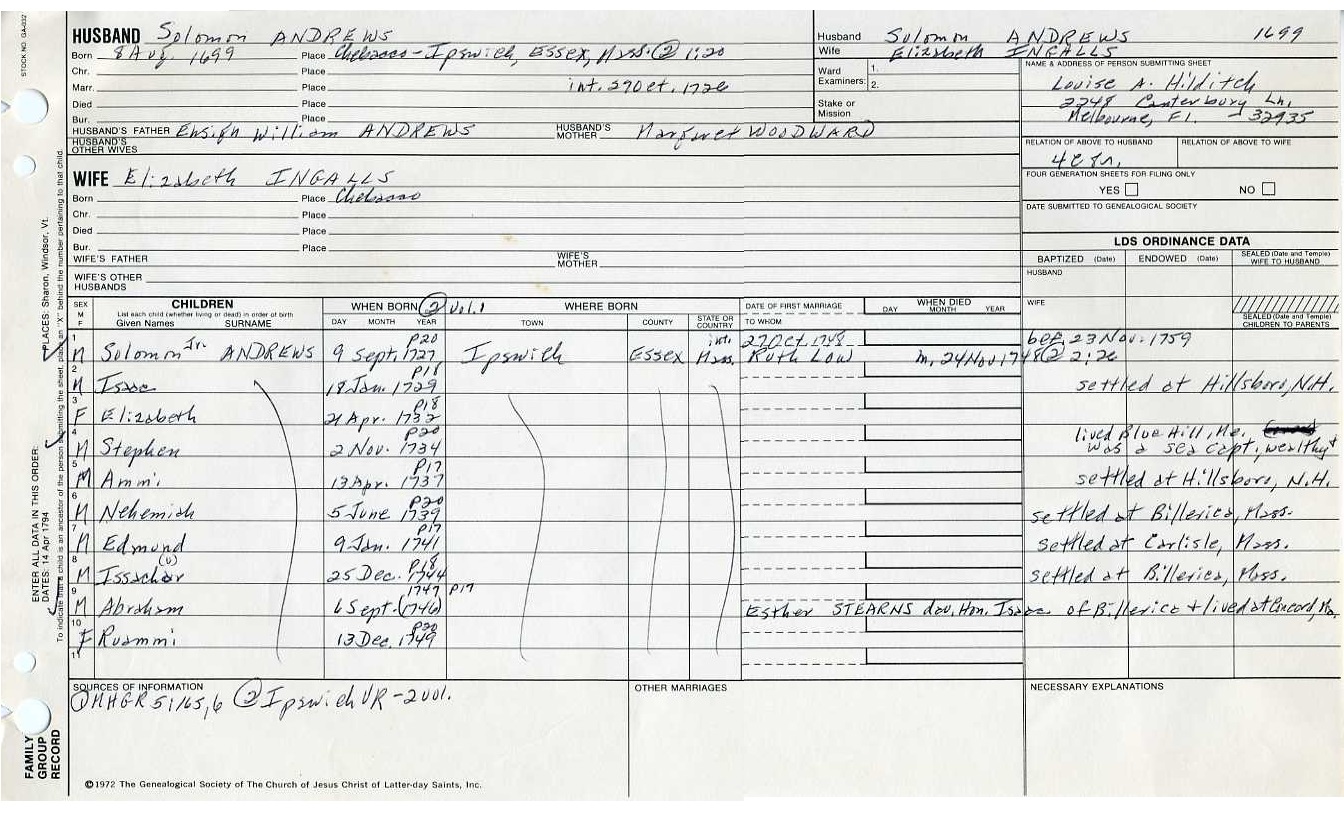 STOCK NO. GA-032
HUSBAND Solomon ANDREWS
Born 8 Aug. 1699 Place Chebacco - Ipswich, Essex, Mass. ② 1:20
Chr. Place
Marr. Place int. 29 Oct. 1726
Died Place
Bur. Place
HUSBAND'S FATHER Ensign William ANDREWS HUSBAND'S MOTHER Margaret WOODWARD
HUSBAND'S OTHER WIVES
Husband Solomon ANDREWS 1699
Wife Elizabeth INGALLS
Ward Examiners: 1. 2.
Stake or Mission
NAME & ADDRESS OF PERSON SUBMITTING SHEET
Louise A. Hilditch
2248 Canterbury Ln.
Melbourne, Fl. - 32935
RELATION OF ABOVE TO HUSBAND RELATION OF ABOVE TO WIFE
FOUR GENERATION SHEETS FOR FILING ONLY
YES NO
DATE SUBMITTED TO GENEALOGICAL SOCIETY
WIFE Elizabeth INGALLS
Born Place Chebacco
Chr. Place
Died Place
Bur. Place
WIFE'S FATHER WIFE'S MOTHER
WIFE'S OTHER HUSBANDS
LDS ORDINANCE DATA
BAPTIZED (Date) ENDOWED (Date) SEALED (Date and Temple) WIFE TO HUSBAND
HUSBAND
WIFE
SEALED (Date and Temple) CHILDREN TO PARENTS
SEX M F
CHILDREN
List each child (whether living or dead) in order of birth
Given Names SURNAME
WHEN BORN ② Vol. 1
DAY MONTH YEAR
WHERE BORN
TOWN COUNTY STATE OR COUNTRY
DATE OF FIRST MARRIAGE
TO WHOM
WHEN DIED
DAY MONTH YEAR
1 M Solomon Jr. ANDREWS 9 Sept. 1727 P20 Ipswich Essex Mass. int. 27 Oct. 1748 Ruth Low m. 24 Nov 1748 ② 2:26 bef. 23 Nov. 1759
2 M Isaac 18 Jan. 1729 P18 settled at Hillsboro, N.H.
3 F Elizabeth 21 Apr. 1732 P18
4 M Stephen 2 Nov. 1734 P20 lived Blue Hill, Me. was a sea capt. wealthy
5 M Ammi 13 Apr. 1737 P17 settled at Hillsboro, N.H.
6 M Nehemiah 5 June 1739 P20 settled at Billerica, Mass.
7 M Edmund 9 Jan. 1741 P17 settled at Carlisle, Mass.
8 M Issachar (u) 25 Dec. 1744 P18 settled at Billerica, Mass.
9 M Abraham 6 Sept. 1747 (1746) P17 Esther STEARNS dau. Hon. Isaac of Billerica + lived at Concord, Ma.
10 F Ruammi 13 Dec. 1749 P20
11
SOURCES OF INFORMATION
① MHGR 5:165,6 ② Ipswich VR - 2 vol.
OTHER MARRIAGES
NECESSARY EXPLANATIONS
FAMILY GROUP RECORD
ENTER ALL DATA IN THIS ORDER:
DATES: 14 Apr 1794
PLACES: Sharon, Windsor, Vt.
To indicate that a child is an ancestor of the person submitting the sheet, place an "X" behind the number pertaining to that child.
©1972 The Genealogical Society of The Church of Jesus Christ of Latter-day Saints, Inc.